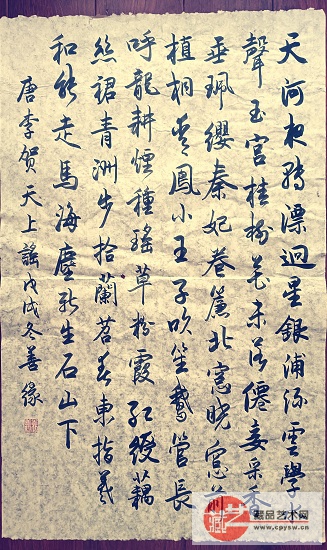 天河夜轉漂迴星銀浦流雲學水
聲玉宮桂樹花未落僊妾采香
垂珮纓秦妃卷簾北窓曉窓前
植桐青鳳小王子吹笙鵝管長
呼龍耕煙種瑤草粉霞紅綬藕
絲裙青洲步拾蘭苕春東指羲
和能走馬海塵新生石山下
唐李賀天上謠戊戌冬善緣
藏艺
藏品艺术网
www.cpysw.cn